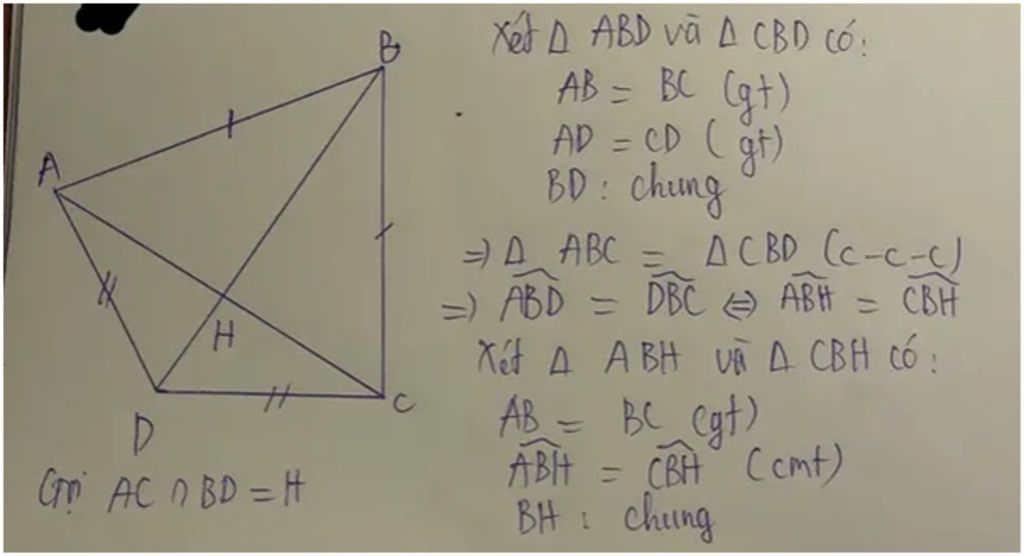 B
A
H
D
C
Gọi AC ∩ BD = H
Xét Δ ABD và Δ CBD có:
AB = BC (gt)
AD = CD (gt)
BD : chung
=> Δ ABC = Δ CBD (c-c-c)
=> \widehat{ABD} = \widehat{DBC} <=> \widehat{ABH} = \widehat{CBH}
Xét Δ ABH và Δ CBH có:
AB = BC (gt)
\widehat{ABH} = \widehat{CBH} (cmt)
BH : chung